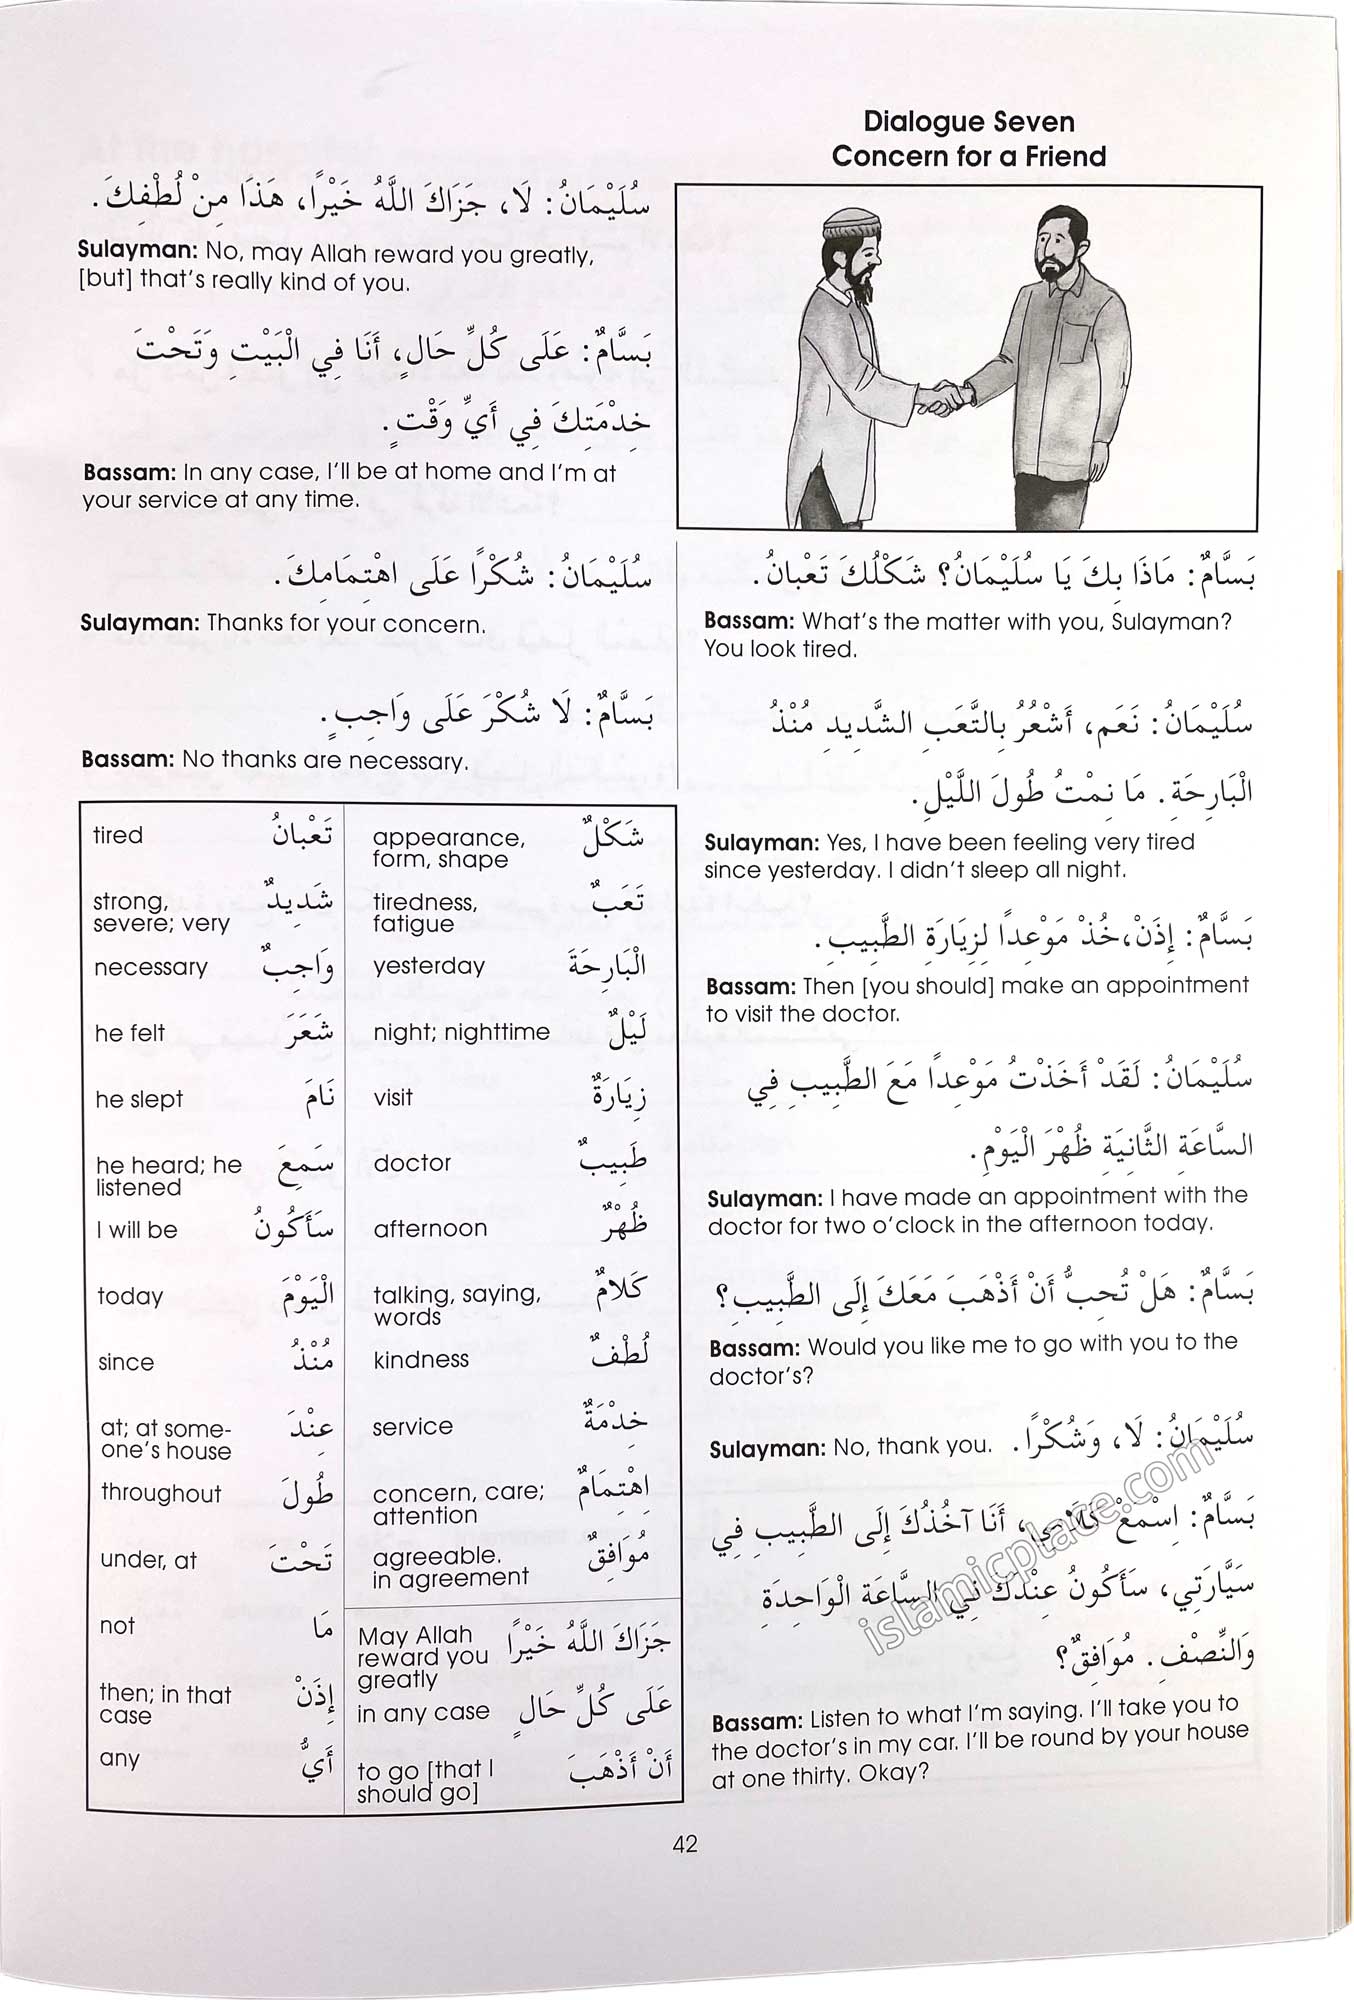 Dialogue Seven
Concern for a Friend
بَسَّامٌ: مَاذَا بِكَ يَا سُلَيْمَانُ؟ شَكْلُكَ تَعْبانُ.
Bassam: What's the matter with you, Sulayman?
You look tired.
سُلَيْمَانُ: نَعَم، أَشْعُرُ بِالتَّعَبِ الشَّدِيدِ مُنْذُ
الْبَارِحَةِ. مَا نِمْتُ طُولَ اللَّيْلِ.
Sulayman: Yes, I have been feeling very tired
since yesterday. I didn't sleep all night.
بَسَّامٌ: إِذَنْ،خُذْ مَوْعِداً لِزِيَارَةِ الطَّبِيبِ.
Bassam: Then [you should] make an appointment
to visit the doctor.
سُلَيْمَانُ: لَقَدْ أَخَذْتُ مَوْعِداً مَعَ الطَّبِيبِ فِي
السَّاعَةِ الثَّانِيَةِ ظُهْرَ الْيَوْمِ.
Sulayman: I have made an appointment with the
doctor for two o'clock in the afternoon today.
بَسَّامٌ: هَلْ تُحِبُّ أَنْ أَذْهَبَ مَعَكَ إِلَى الطَّبِيبِ؟
Bassam: Would you like me to go with you to the
doctor's?
سُلَيْمَانُ: لَا، وَشُكْرًا.
Sulayman: No, thank you.
بَسَّامٌ: اِسْمَعْ كَلَامِي، أَنَا آخُذُكَ إِلَى الطَّبِيبِ فِي
سَيَّارَتِي، سَأَكُونُ عِنْدَكَ فِي السَّاعَةِ الْوَاحِدَةِ
وَالنِّصْفِ. مُوَافِقٌ؟
Bassam: Listen to what I'm saying. I'll take you to
the doctor's in my car. I'll be round by your house
at one thirty. Okay?
سُلَيْمَانُ: لَا، جَزَاكَ اللَّهُ خَيْرًا، هَذَا مِنْ لُطْفِكَ.
Sulayman: No, may Allah reward you greatly,
[but] that's really kind of you.
بَسَّامٌ: عَلَى كُلِّ حَالٍ، أَنَا فِي الْبَيْتِ وَتَحْتَ
خِدْمَتِكَ فِي أَيِّ وَقْتٍ.
Bassam: In any case, I'll be at home and I'm at
your service at any time.
سُلَيْمَانُ: شُكْرًا عَلَى اهْتِمَامِكَ.
Sulayman: Thanks for your concern.
بَسَّامٌ: لَا شُكْرَ عَلَى وَاجِبٍ.
Bassam: No thanks are necessary.
appearance, form, shape شَكْلٌ
tiredness, fatigue تَعَبٌ
yesterday الْبَارِحَةَ
night; nighttime لَيْلٌ
visit زِيَارَةٌ
doctor طَبِيبٌ
afternoon ظُهْرٌ
talking, saying, words كَلامٌ
kindness لُطْفٌ
service خِدْمَةٌ
concern, care; attention اِهْتِمَامٌ
agreeable. in agreement مُوَافِقٌ
May Allah reward you greatly جَزَاكَ اللَّهُ خَيْرًا
in any case عَلَى كُلِّ حَالٍ
to go [that I should go] أَنْ أَذْهَبَ
tired تَعْبانُ
strong, severe; very شَدِيدٌ
necessary وَاجِبٌ
he felt شَعَرَ
he slept نَامَ
he heard; he listened سَمِعَ
I will be سَأَكُونُ
today الْيَوْمَ
since مُنْذُ
at; at some-one's house عِنْدَ
throughout طُولَ
under, at تَحْتَ
not مَا
then; in that case إِذَنْ
any أَيُّ
42
islamicplace.com